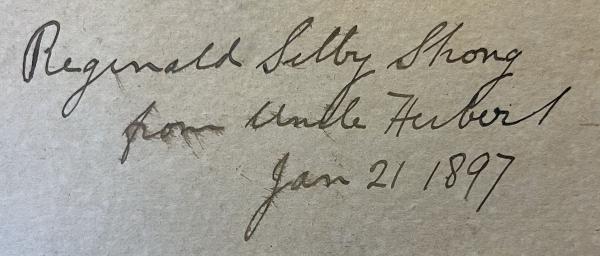 Reginald Selby Strong
from Uncle Herbert
Jan 21 1897